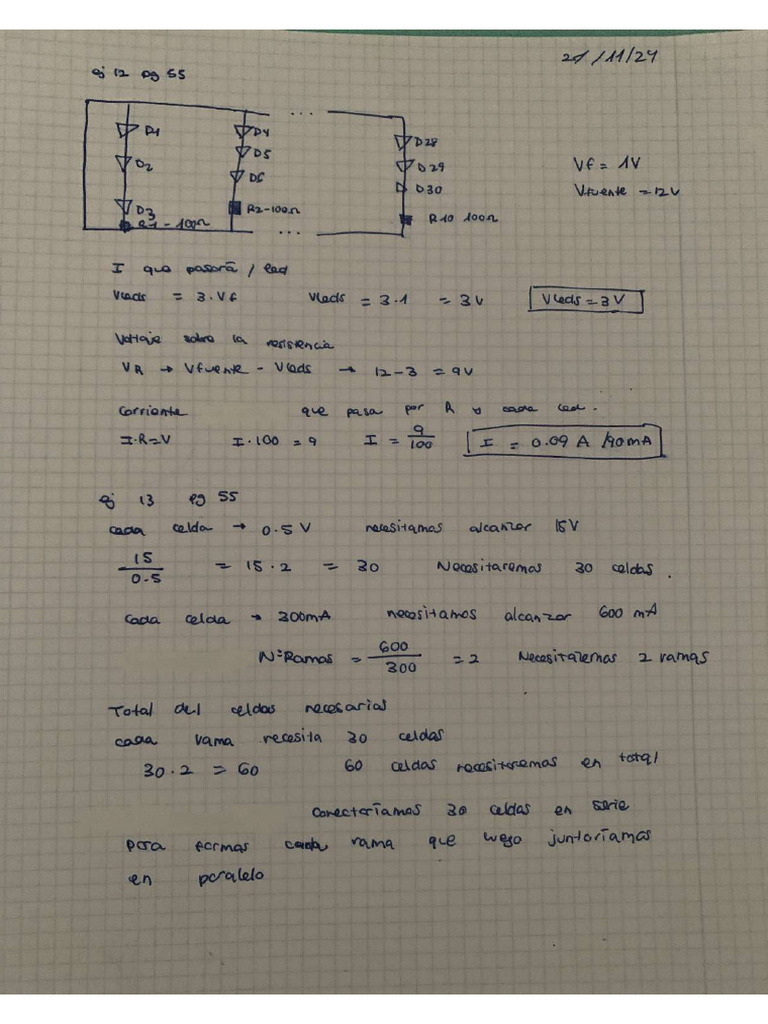 21/11/24
ej 12 pg 55
...
D1 D4 D28
D2 D5 D29
D3 D6 D30
R1 - 100Ω R2-100Ω R10 100Ω
...
Vf = 1V
Vfuente = 12V
I que pasará / led
Vleds = 3.Vf Vleds = 3.1 = 3V Vleds = 3V
Voltaje sobre la resistencia
VR → Vfuente - Vleds → 12-3 = 9V
Corriente que pasa por R y cada led.
I.R=V I.100 = 9 I = 9/100 I = 0.09 A /90mA
ej 13 pg 55
cada celda → 0.5 V necesitamos alcanzar 15V
15/0.5 = 15.2 = 30 Necesitaremos 30 celdas.
cada celda → 300mA necesitamos alcanzar 600 mA
Nº Ramas = 600/300 = 2 Necesitaremos 2 ramas
Total del celdas necesarias
cada rama necesita 30 celdas
30.2 = 60 60 celdas necesitaremos en total
conectaríamos 30 celdas en serie
para formas cada rama que luego juntaríamos
en paralelo